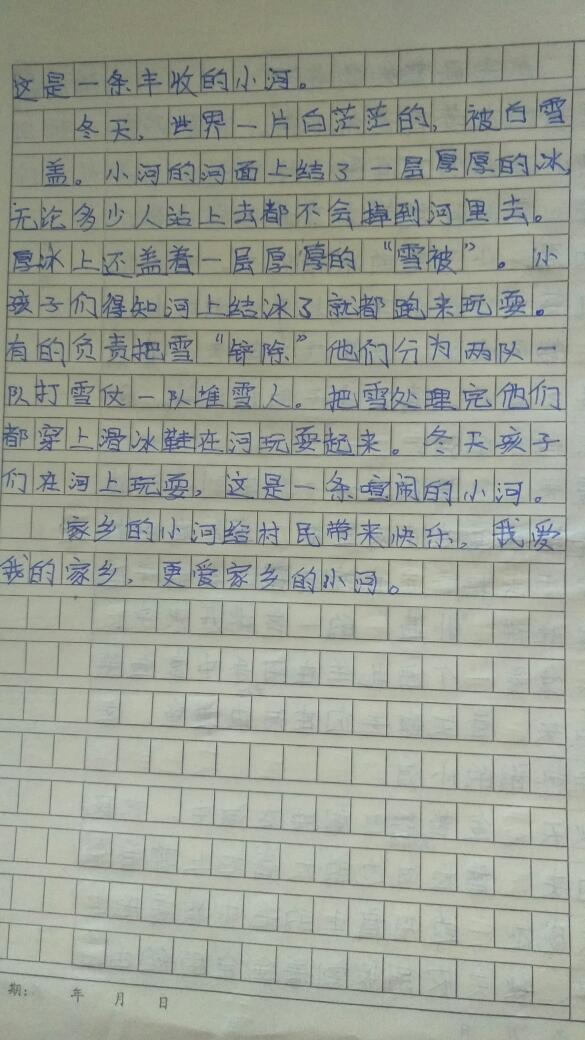 这是一条丰收的小河。
冬天，世界一片白茫茫的，被白雪
盖。小河的河面上结了一层厚厚的冰，
无论多少人站上去都不会掉到河里去。
厚冰上还盖着一层厚厚的“雪被”。小
孩子们得知河上结冰了就都跑来玩耍。
有的负责把雪“铲除”他们分为两队一
队打雪仗一队堆雪人。把雪处理完他们
都穿上滑冰鞋在河玩耍起来。冬天孩子
们在河上玩耍，这是一条喧闹的小河。
家乡的小河给村民带来快乐，我爱
我的家乡，更爱家乡的小河。
期： 年 月 日